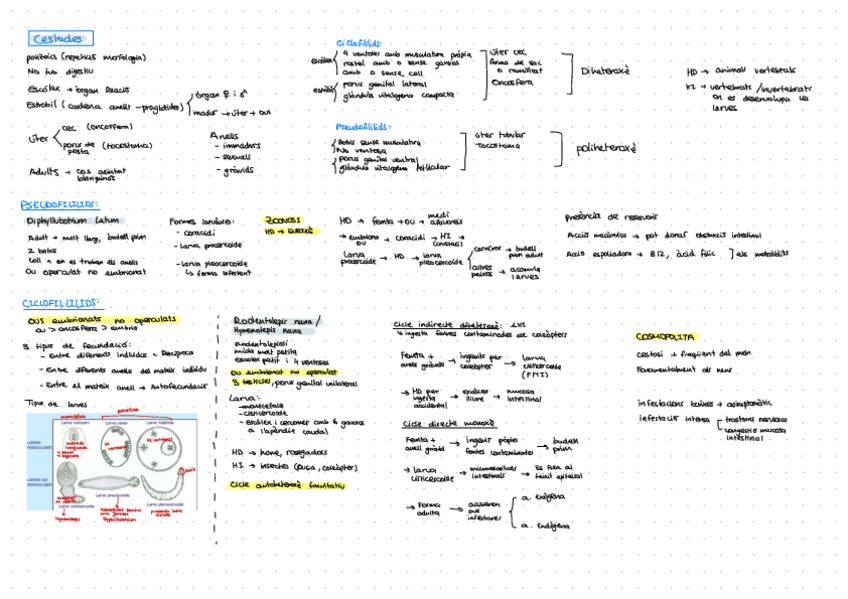 Cestodes
polizoics (repetició morfologia)
No tub digestiu
Escòlex → òrgan fixació
Estròbil (cadena anells - proglòtides)
òrgan ♀ i ♂
madur → úter + ous
Úter
cec (oncosfera)
porus de posta (tocostoma)
Adults → cos acintat blanquinós
Anells
- immadurs
- sexuals
- gràvids
Ciclofílids:
escòlex
4 ventoses amb musculatura pròpia
rostel amb o sense ganxos
amb o sense coll
estròbil
porus genital lateral
glàndula vitelògena compacta
úter cec
forma de sac o ramificat
Oncosfera
Diheteroxè
HD → animals vertebrats
HI → vertebrats / invertebrats on es desenvolupa les larves
Pseudofílids:
Botris sense musculatura
No ventosa
porus genital ventral
glàndula vitelògena fol·licular
úter tubular
Tocostoma
poliheteroxè
PSEUDOFIL·LIDS:
Diphyllobotrium latum
Adult → molt llarg, budell prim
2 botris
Coll → on es troben els anells
Ou operculat no embrionat
Formes larvàries:
- coracidi
- Larva procercoide
- Larva plerocercoide
↳ forma infectant
ZOONOSI
HD → femta + ou → medi
→ embriona ou → coracidi → HI →
Larva procercoide → HD → larva plerocercoide
carnívor → budell prim adult
altres peixos → acumula larves
Presència de reservori
Acció mecànica → pot donar obstrucció intestinal
Acció espoliadora → B12, àcid fòlic ] els metabòlits
CICLOFIL·LIDS:
OUS embrionats no operculats
ou > oncosfera > embrió
3 tipus de fecundació:
- Entre diferents individus → Recíproca
- Entre diferents anells del mateix individu
- Entre el mateix anell → Autofecundació
Tipus de larves
Rodentolepis nana /
Hymenolepis nana
mida molt petita
escòlex petit i 4 ventoses
Ou embrionat no operculat
3 testicles, porus genital unilateral
Larva:
- monocèfala
- cisticercoide
- Escòlex i cercomer amb 6 ganxos a l'apèndix caudal
HD → home, rosegadors
HI → insectes (puça, coleòpter)
Cicle autoheteroxè facultatiu
Cicle indirecte diheteroxè: 1HI
↳ ingesta farines contaminades de coleòpters
Femta + anells gràvids → ingerits per coleòpter → larva cisticercoide
→ HD per ingesta accidental → endoer lliure → mucosa intestinal
Cicle directe monoxè
Femta + anell gràvid → ingerir pròpies femtes contaminades → budell prim
→ larva cisticercoide → microvellositats intestinals → Es fixa al teixit epitelial
→ Forma adulta → alliberen ous infectants
a. exògena
a. endògena
COSMOPOLITA
Cestosi + freqüent del món
infestacions baixes → asimptomàtic
infestació intensa
trastorns nerviosos
congestió mucosa intestinal